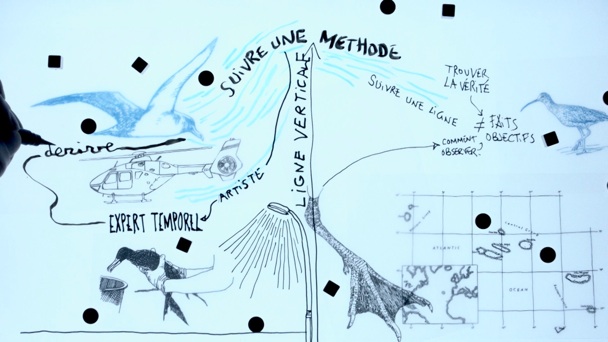 SUIVRE UNE METHODE
SUIVRE UNE LIGNE
TROUVER
LA VÉRITÉ
≠ FAITS
OBJECTIFS
COMMENT
OBSERVER?
LIGNE VERTICALE
dérive
ARTISTE
EXPERT TEMPOREL
ATLANTIC
OCEAN